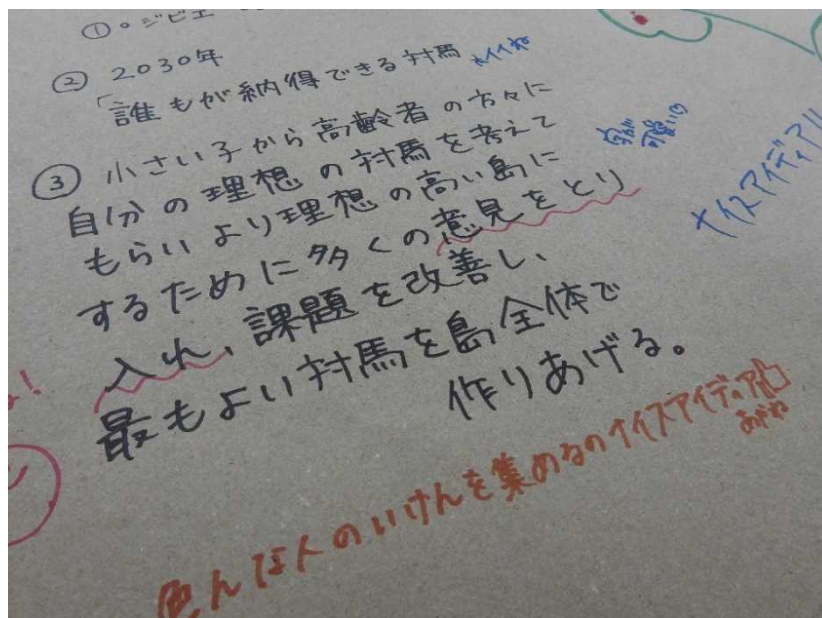 ①。ジビエ
② 2030年
「誰もが納得できる対馬
イイね
③ 小さい子から高齢者の方々に
自分の理想の対馬を考えて
もらいより理想の高い島に
するために多くの意見をとり
入れ、課題を改善し、
最もよい対馬を島全体で
作りあげる。
ナイスアイディア!!
色んな人のいけんを集めるのナイスアイディア